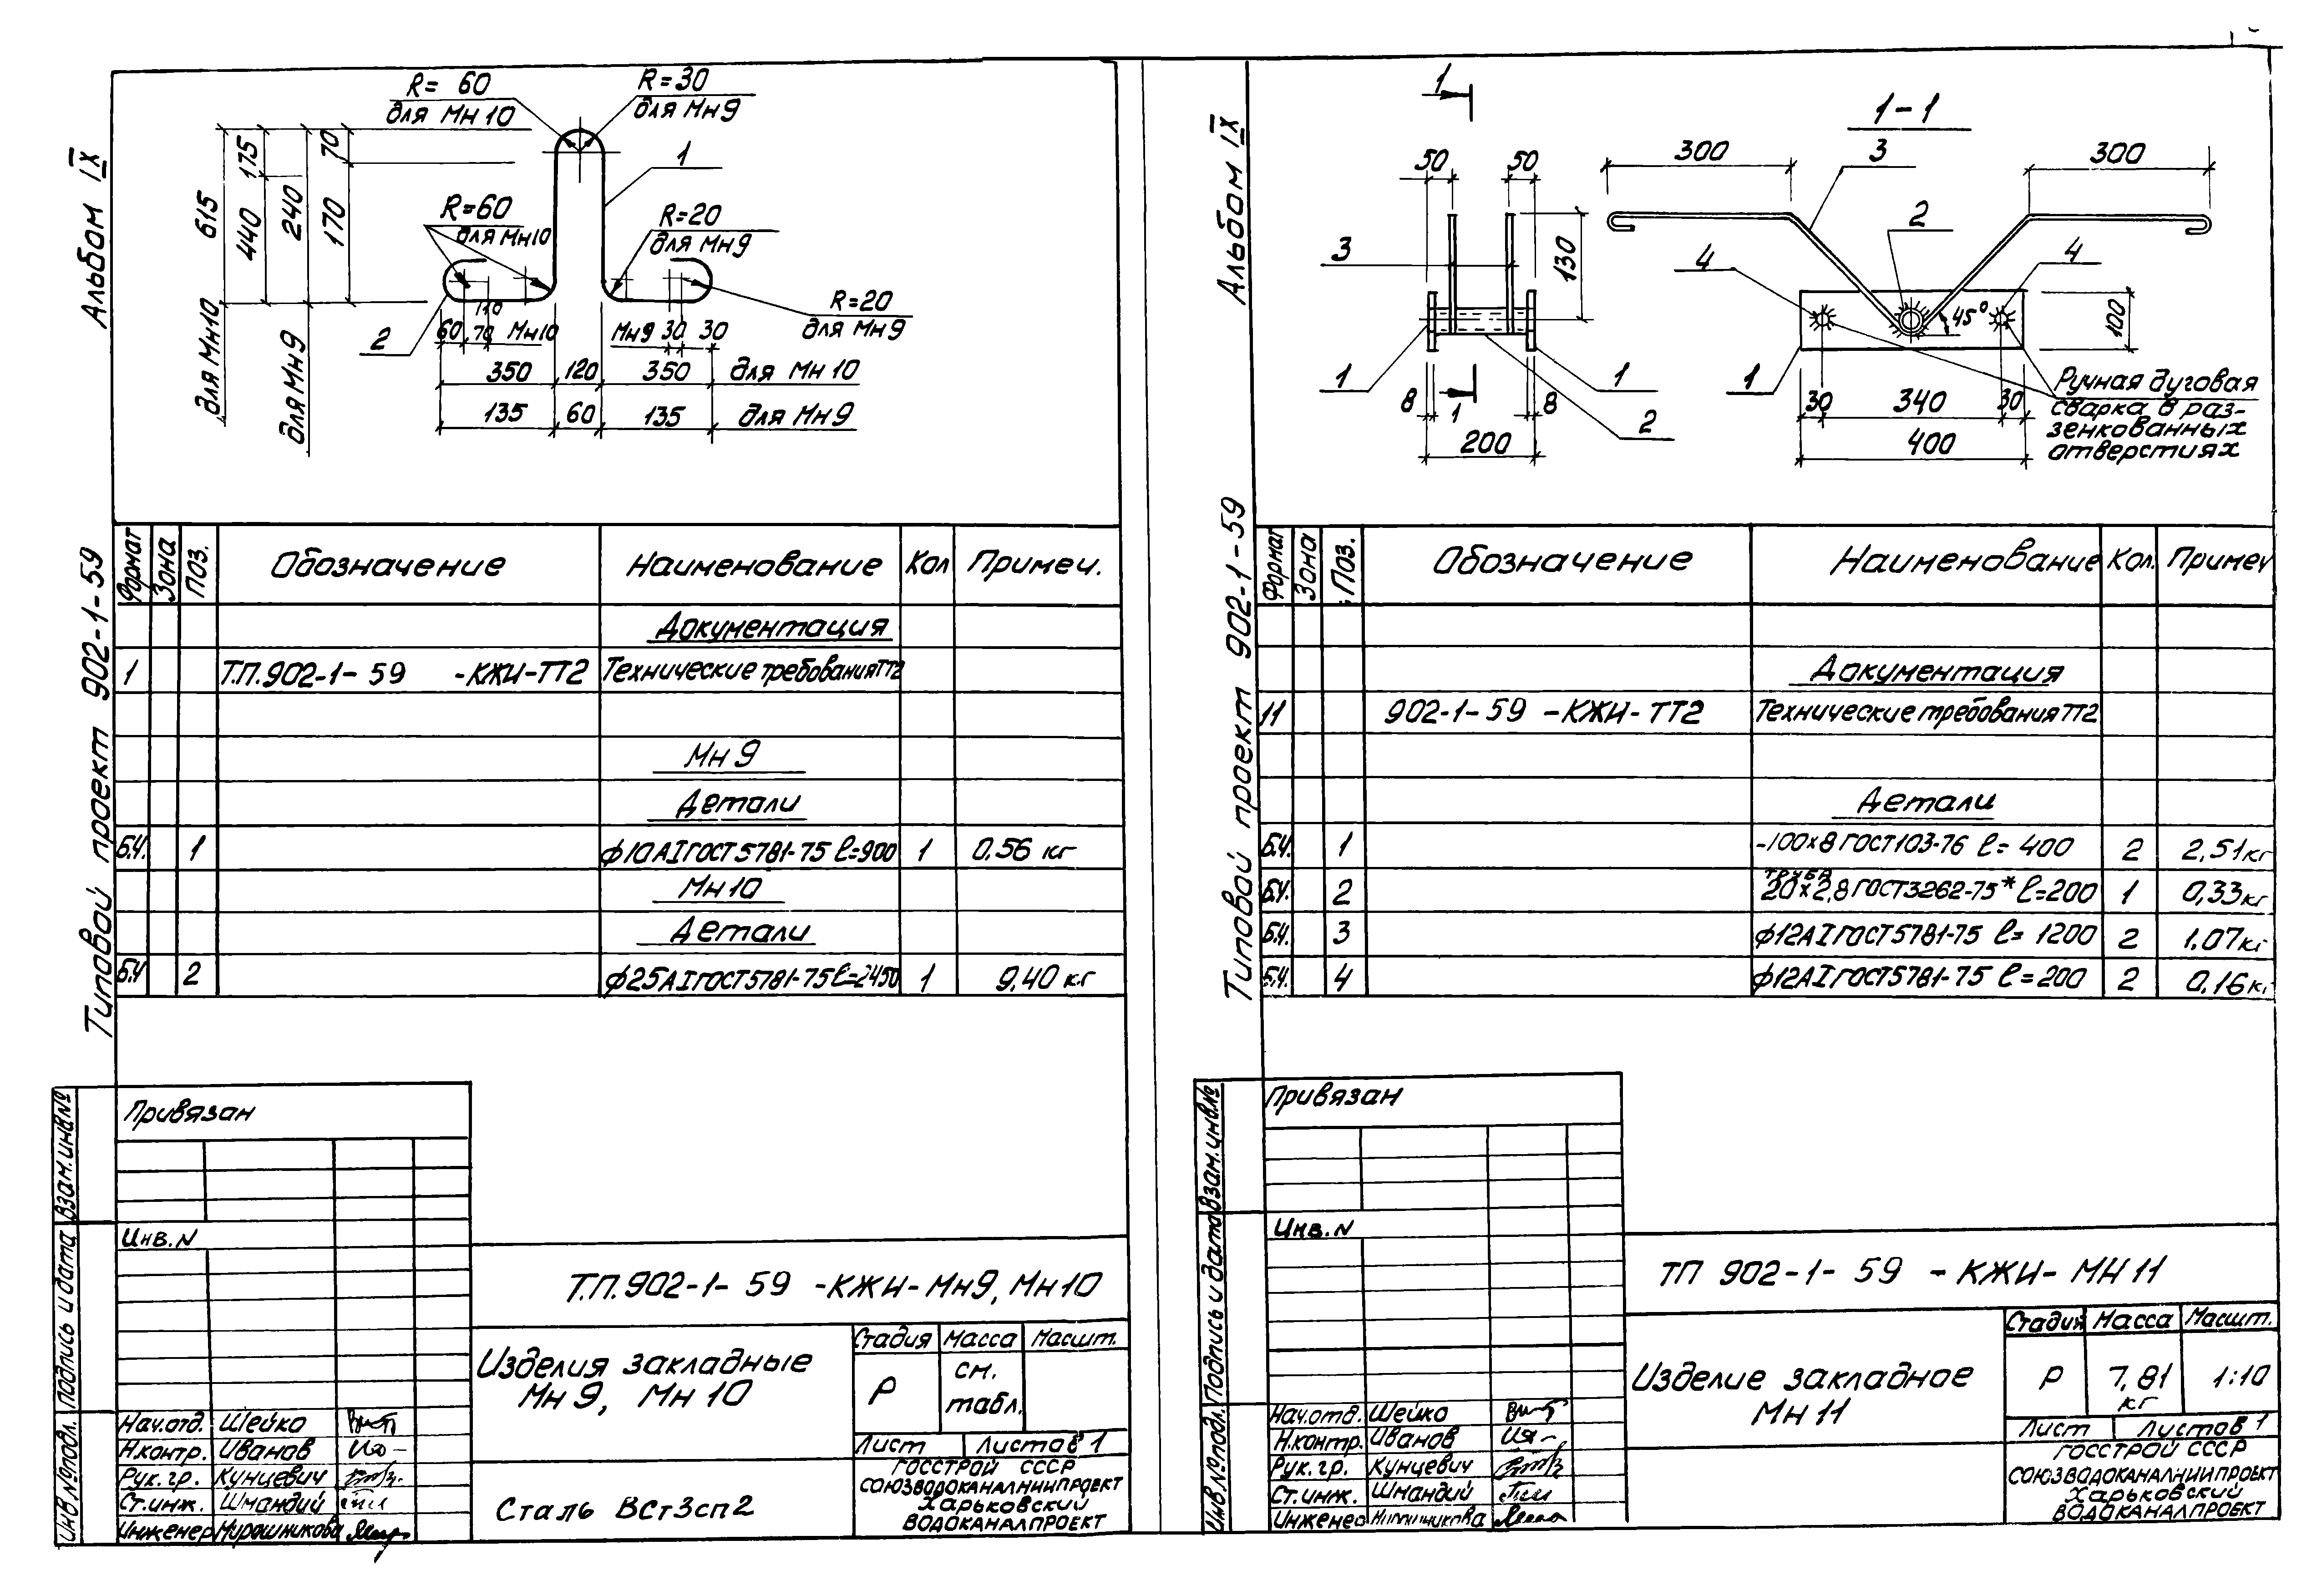 Альбом IX
Типовой проект 902-1-59
R= 60
для Мн 10
R=30
для Мн9
1
70
175
615
440
240
170
R=60
для Мн10
R=20
для Мн9
R=20
для Мн9
для Мн10
для Мн9
2
110
60 70 Мн10
Мн9 30 30
350 120 350 для Мн 10
135 60 135 для Мн9
Формат Зона Поз. Обозначение Наименование Кол Примеч.
Документация
1 Т.П.902-1-59 -КЖИ-ТТ2 Технические требования ТТ2
Мн 9
Детали
Б.Ч. 1 ф10АI ГОСТ5781-75 ℓ=900 1 0,56 кг
Мн10
Детали
Б.Ч 2 ф25АI ГОСТ5781-75 ℓ=2450 1 9,40 кг
Привязан
Инв. N
Взам.инв№
Подпись и дата
Инв№подл.
Т.П.902-1-59 -КЖИ-Мн9, Мн10
Изделия закладные
Мн 9, Мн 10
Стадия Масса Масшт.
Р см.
табл.
Лист Листов 1
Сталь ВСт3сп2
ГОССТРОЙ СССР
СОЮЗВОДОКАНАЛНИИПРОЕКТ
Харьковский
ВОДОКАНАЛПРОЕКТ
Нач.отд. Шейко
Н.контр. Иванов
Рук. гр. Кунцевич
Ст.инж. Шмандий
Инженер Мирошникова
Альбом IX
Типовой проект 902-1-59
1
1-1
50 50
300 3 300
2
3
130
4 4
45°
100
1 1 1
8 1 8
2
200
30 340 30
400
Ручная дуговая
сварка в раз-
зенкованных
отверстиях
Формат Зона Поз. Обозначение Наименование Кол. Примеч
Документация
11 902-1-59 -КЖИ-ТТ2 Технические требования ТТ2
Детали
Б.Ч. 1 -100х8 ГОСТ103-76 ℓ= 400 2 2,51кг
труба
Б.Ч. 2 20х2,8 ГОСТ3262-75* ℓ=200 1 0,33кг
Б.Ч. 3 ф12АI ГОСТ5781-75 ℓ= 1200 2 1,07кг
Б.Ч. 4 ф12АI ГОСТ5781-75 ℓ=200 2 0,16кг
Привязан
Инв. N
Взам.инв.№
Подпись и дата
Инв.№подл.
ТП 902-1-59 -КЖИ-МН11
Изделие закладное
Мн 11
Стадия Масса Масшт.
Р 7,81 1:10
кг
Лист Листов 1
ГОССТРОЙ СССР
СОЮЗВОДОКАНАЛНИИПРОЕКТ
Харьковский
ВОДОКАНАЛПРОЕКТ
Нач.отд. Шейко
Н.контр. Иванов
Рук.гр. Кунцевич
Ст.инж. Шмандий
Инженер Мирошникова